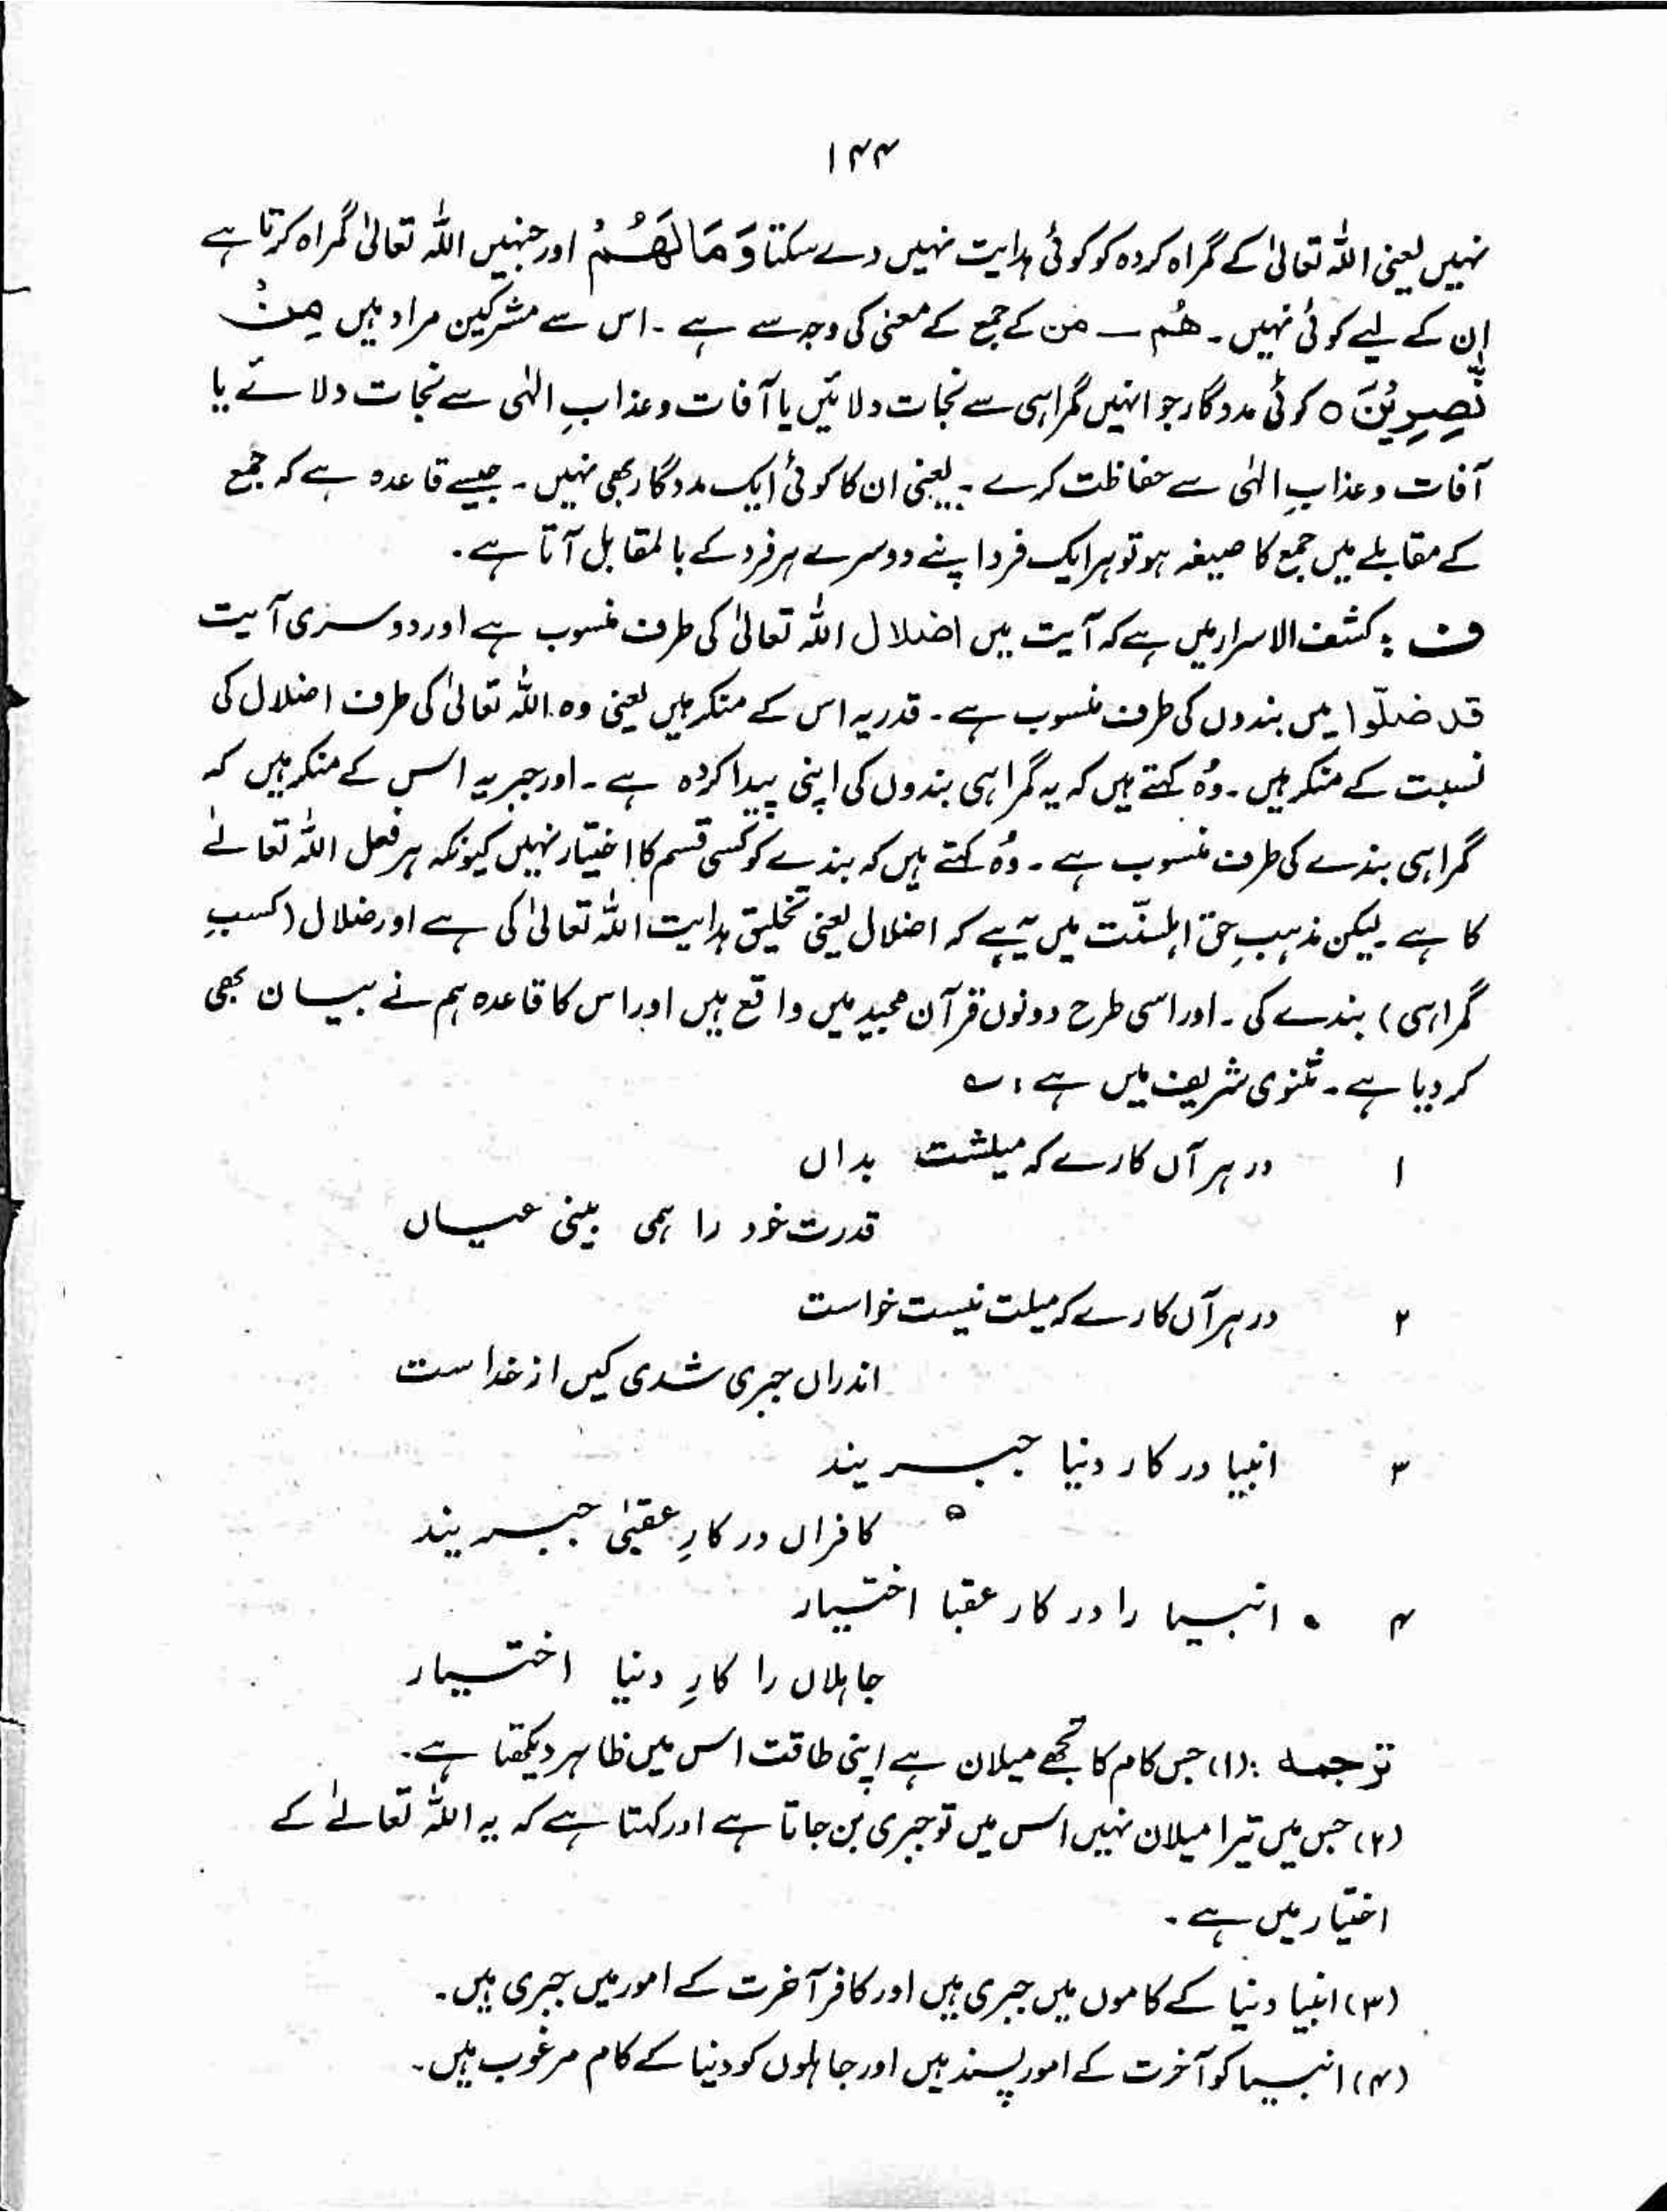 ۱۴۴
نہیں یعنی اللہ تعالیٰ کے گمراہ کردہ کو کوئی ہدایت نہیں دے سکتا وَ مَا لَهُمْ اور جنہیں اللہ تعالیٰ گمراہ کرتا ہے
ان کے لیے کوئی نہیں ۔ ھُم ــ من کے جمع کے معنی کی وجہ سے ہے ۔ اس سے مشرکین مراد ہیں مِنْ
نّٰصِرِیْنَ ○ کوئی مددگار جو انہیں گمراہی سے نجات دلائیں یا آفات و عذابِ الٰہی سے نجات دلائے یا
آفات و عذابِ الٰہی سے حفاظت کرے ۔ یعنی ان کا کوئی ایک مددگار بھی نہیں ۔ جیسے قاعدہ ہے کہ جمع
کے مقابلے میں جمع کا صیغہ ہو تو ہر ایک فرد اپنے دوسرے ہر فرد کے بالمقابل آتا ہے ۔
ف : کشف الاسرار میں ہے کہ آیت میں اضلال اللہ تعالیٰ کی طرف منسوب ہے اور دوسری آیت
قد ضلّوا میں بندوں کی طرف منسوب ہے ۔ قدریہ اس کے منکر ہیں یعنی وہ اللہ تعالیٰ کی طرف اضلال کی
نسبت کے منکر ہیں ۔ وُہ کہتے ہیں کہ یہ گمراہی بندوں کی اپنی پیدا کردہ ہے ۔ اور جبریہ اس کے منکر ہیں کہ
گمراہی بندے کی طرف منسوب ہے ۔ وُہ کہتے ہیں کہ بندے کو کسی قسم کا اختیار نہیں کیونکہ ہر فعل اللہ تعالےٰ
کا ہے لیکن مذہبِ حق اہلسنّت میں یہ ہے کہ اضلال یعنی تخلیق ہدایت اللہ تعالیٰ کی ہے اور ضلال (کسبِ
گمراہی) بندے کی ۔ اور اسی طرح دونوں قرآن مجید میں واقع ہیں اور اس کا قاعدہ ہم نے بیان بھی
کر دیا ہے ۔ مثنوی شریف میں ہے : ؎
۱ در ہر آں کارے کہ میلشت بداں
قدرت خود را ہمی بینی عیاں
۲ در ہر آں کارے کہ میلت نیست خواست
اندراں جبری شدی کیں از خداست
۳ انبیا در کار دنیا جبریند
کافراں در کارِ عقبیٰ جبریند
۴ انبیا را در کار عقبا اختیار
جاہلاں را کارِ دنیا اختیار
ترجمہ : (۱) جس کام کا تجھے میلان ہے اپنی طاقت اس میں ظاہر دیکھتا ہے ۔
(۲) جس میں تیرا میلان نہیں اس میں تو جبری بن جاتا ہے اور کہتا ہے کہ یہ اللہ تعالےٰ کے
اختیار میں ہے ۔
(۳) انبیا دنیا کے کاموں میں جبری ہیں اور کافر آخرت کے امور میں جبری ہیں ۔
(۴) انبیا کو آخرت کے امور پسند ہیں اور جاہلوں کو دنیا کے کام مرغوب ہیں ۔